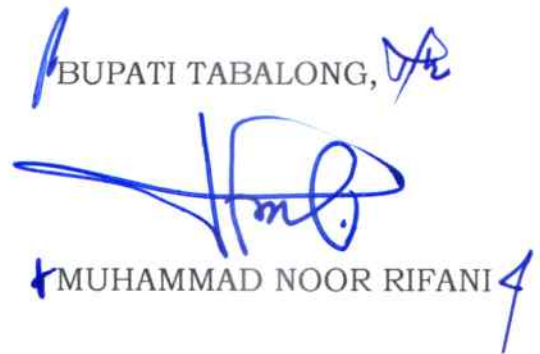 BUPATI TABALONG,
MUHAMMAD NOOR RIFANI